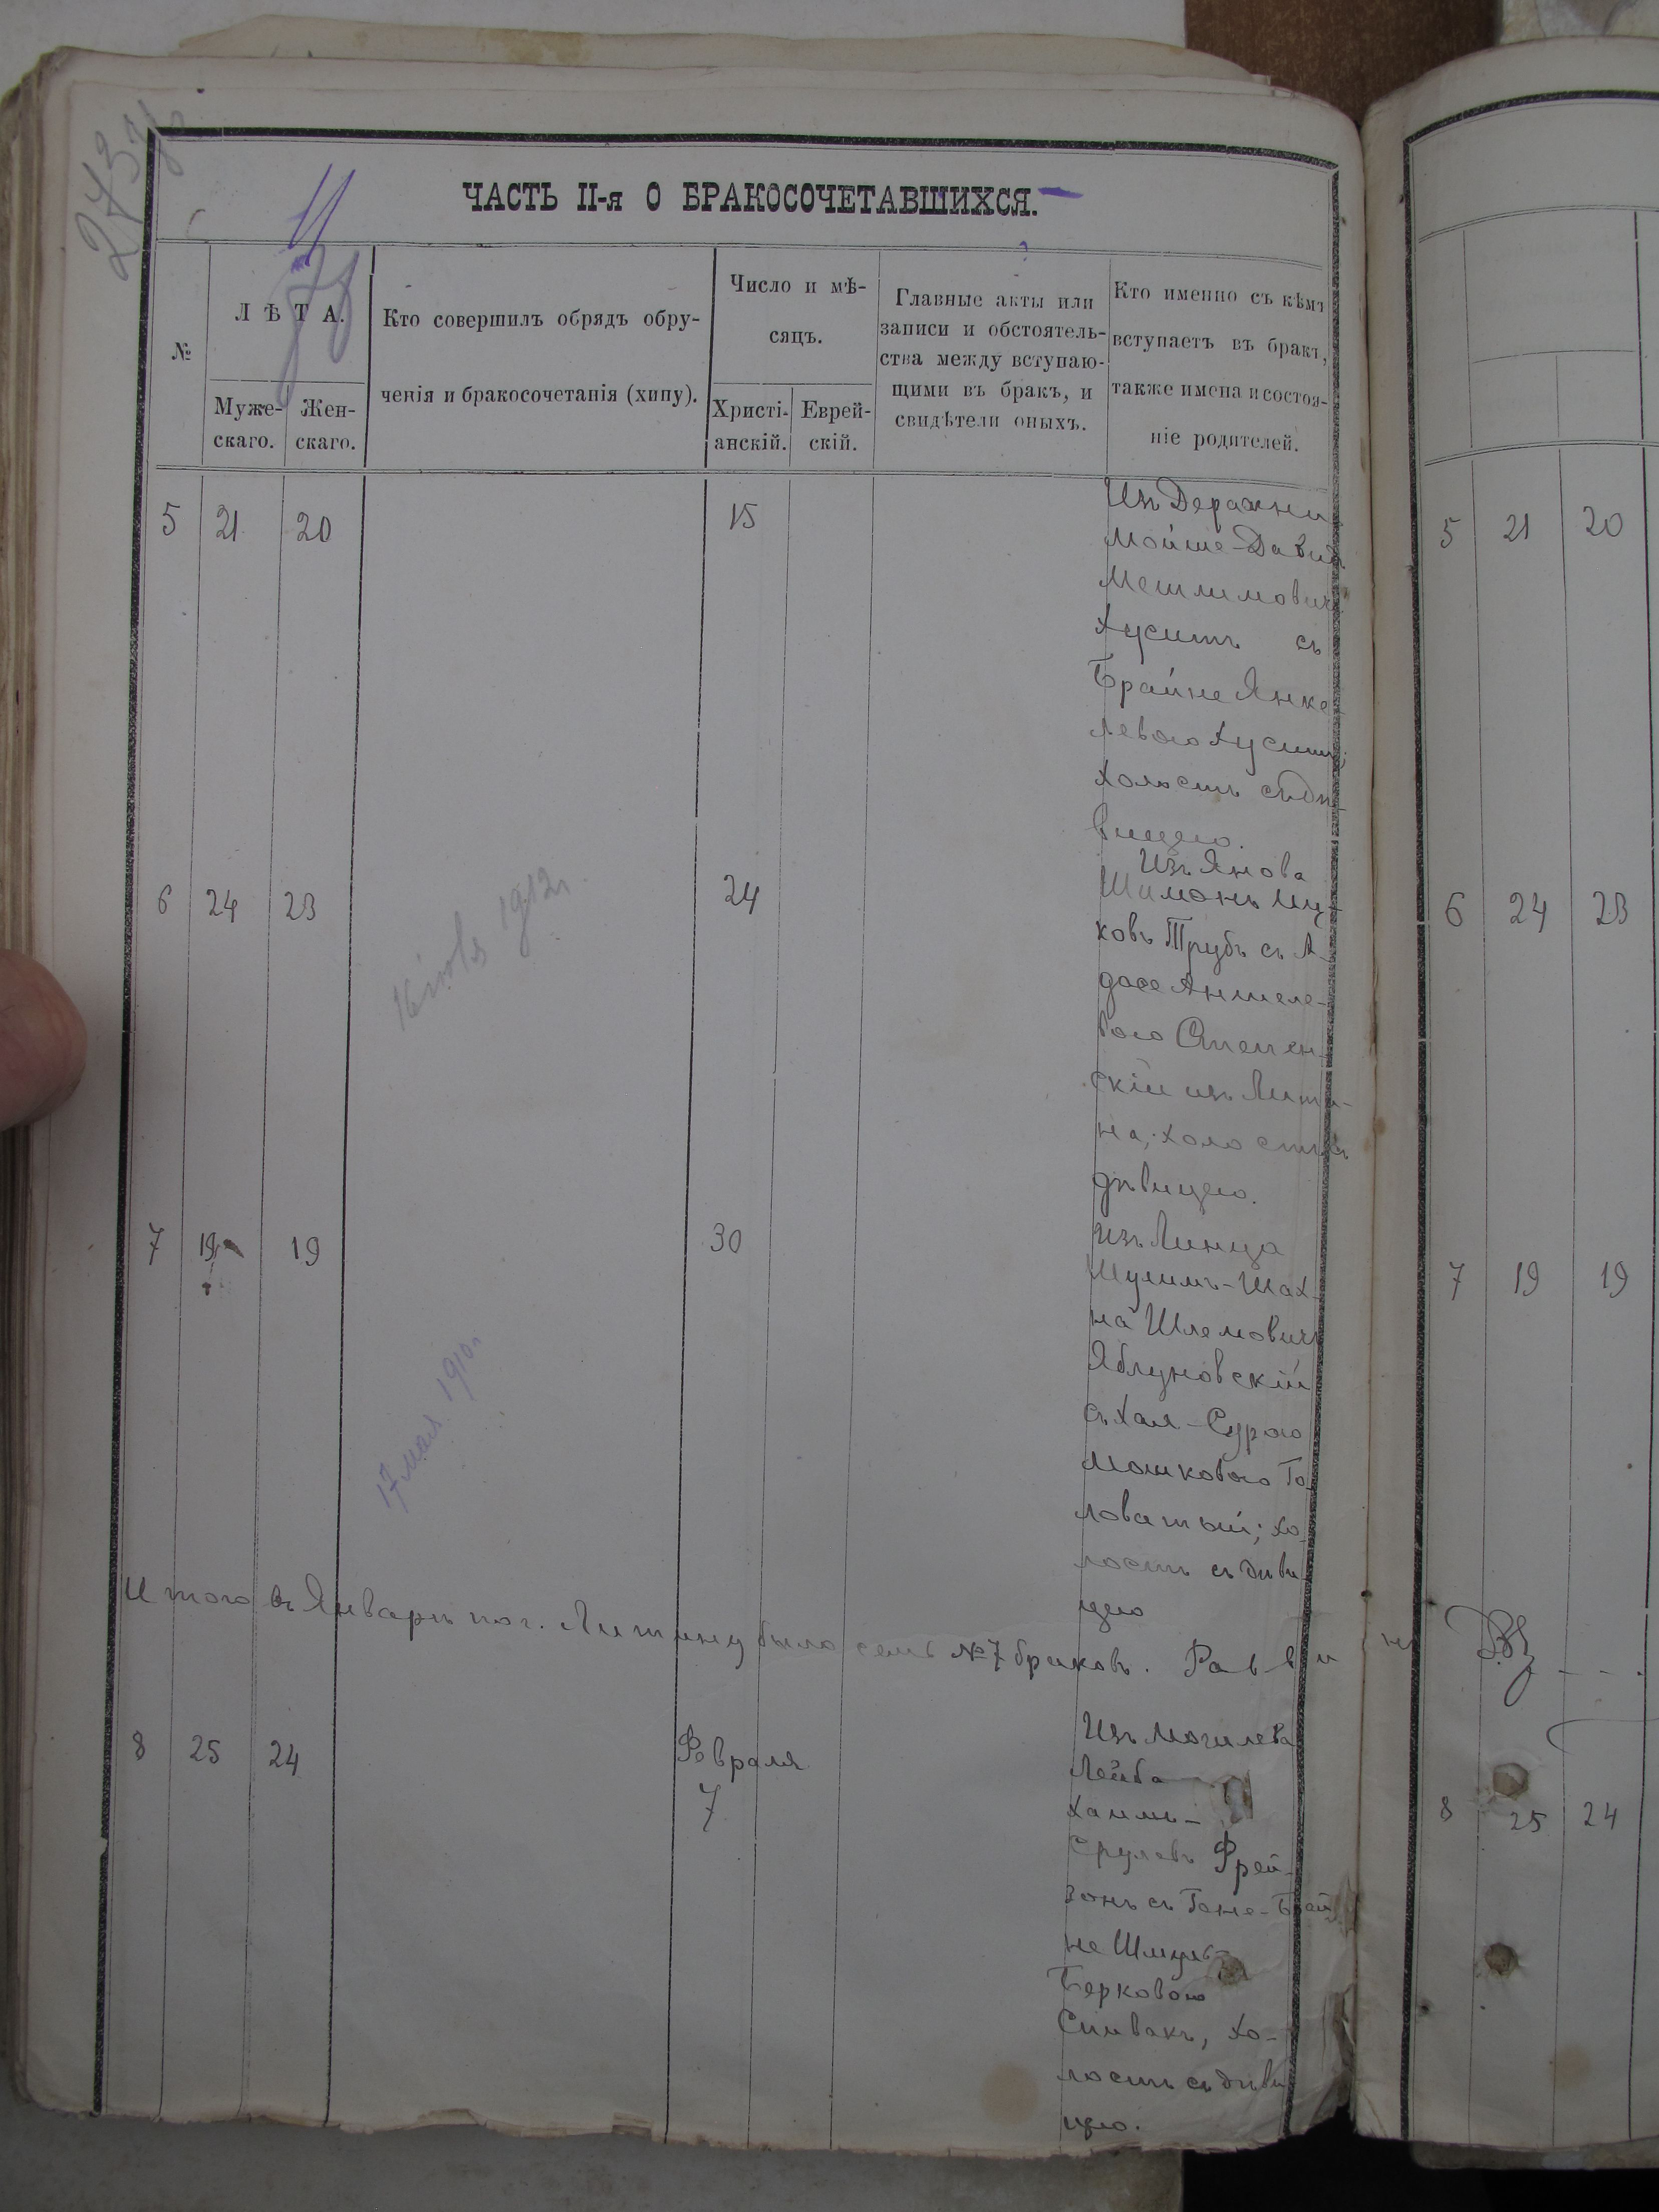 ЧАСТЬ II-я О БРАКОСОЧЕТАВШИХСЯ.
№
ЛѢТА.
Муже-
скаго.
Жен-
скаго.
Кто совершилъ обрядъ обру-
ченія и бракосочетанія (хипу).
Число и мѣ-
сяцъ.
Христі-
анскій.
Еврей-
скій.
Главные акты или
записи и обстоятель-
ства между вступаю-
щими въ бракъ, и
свидѣтели оныхъ.
Кто именно съ кѣмъ
вступаетъ въ бракъ,
также имена и состоя-
ніе родителей.
5 21 20 15
Изъ Деражни
Мойше-Давид
Мешлимовичъ
Хуситъ съ
Брайне Янке-
левою Хуситъ;
холостъ съ дѣ-
вицею.
6 24 23 24
16 іюля 1912 г.
Изъ Янова
Шимонъ Иц-
ковъ Трубъ съ А-
досе Аншеле-
вою Степен-
скій изъ Лити-
на; холостъ съ
дѣвицею.
7 19 19 30
17 мая 1910 г.
изъ Линца
Шулимъ-Шах-
на Шлемовичъ
Яблуновскій
съ Хая-Сурою
Мошковою Го-
ловатый; хо-
лостъ съ дѣви-
цею
Итого въ Январѣ по г. Литину было семь №7 браковъ. Раввинъ
8 25 24 Февраля
7
Изъ Могилева
Лейба
Хаимъ-
Срулевъ Фрей-
зонъ съ Гене-Брай
не Шмуль-
Берковою
Спивакъ, хо-
лостъ съ дѣви
цею.
5 21 20
6 24 23
7 19 19
8 25 24